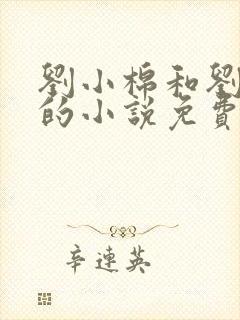 劉小棉和劉
的小說免費
辛連英